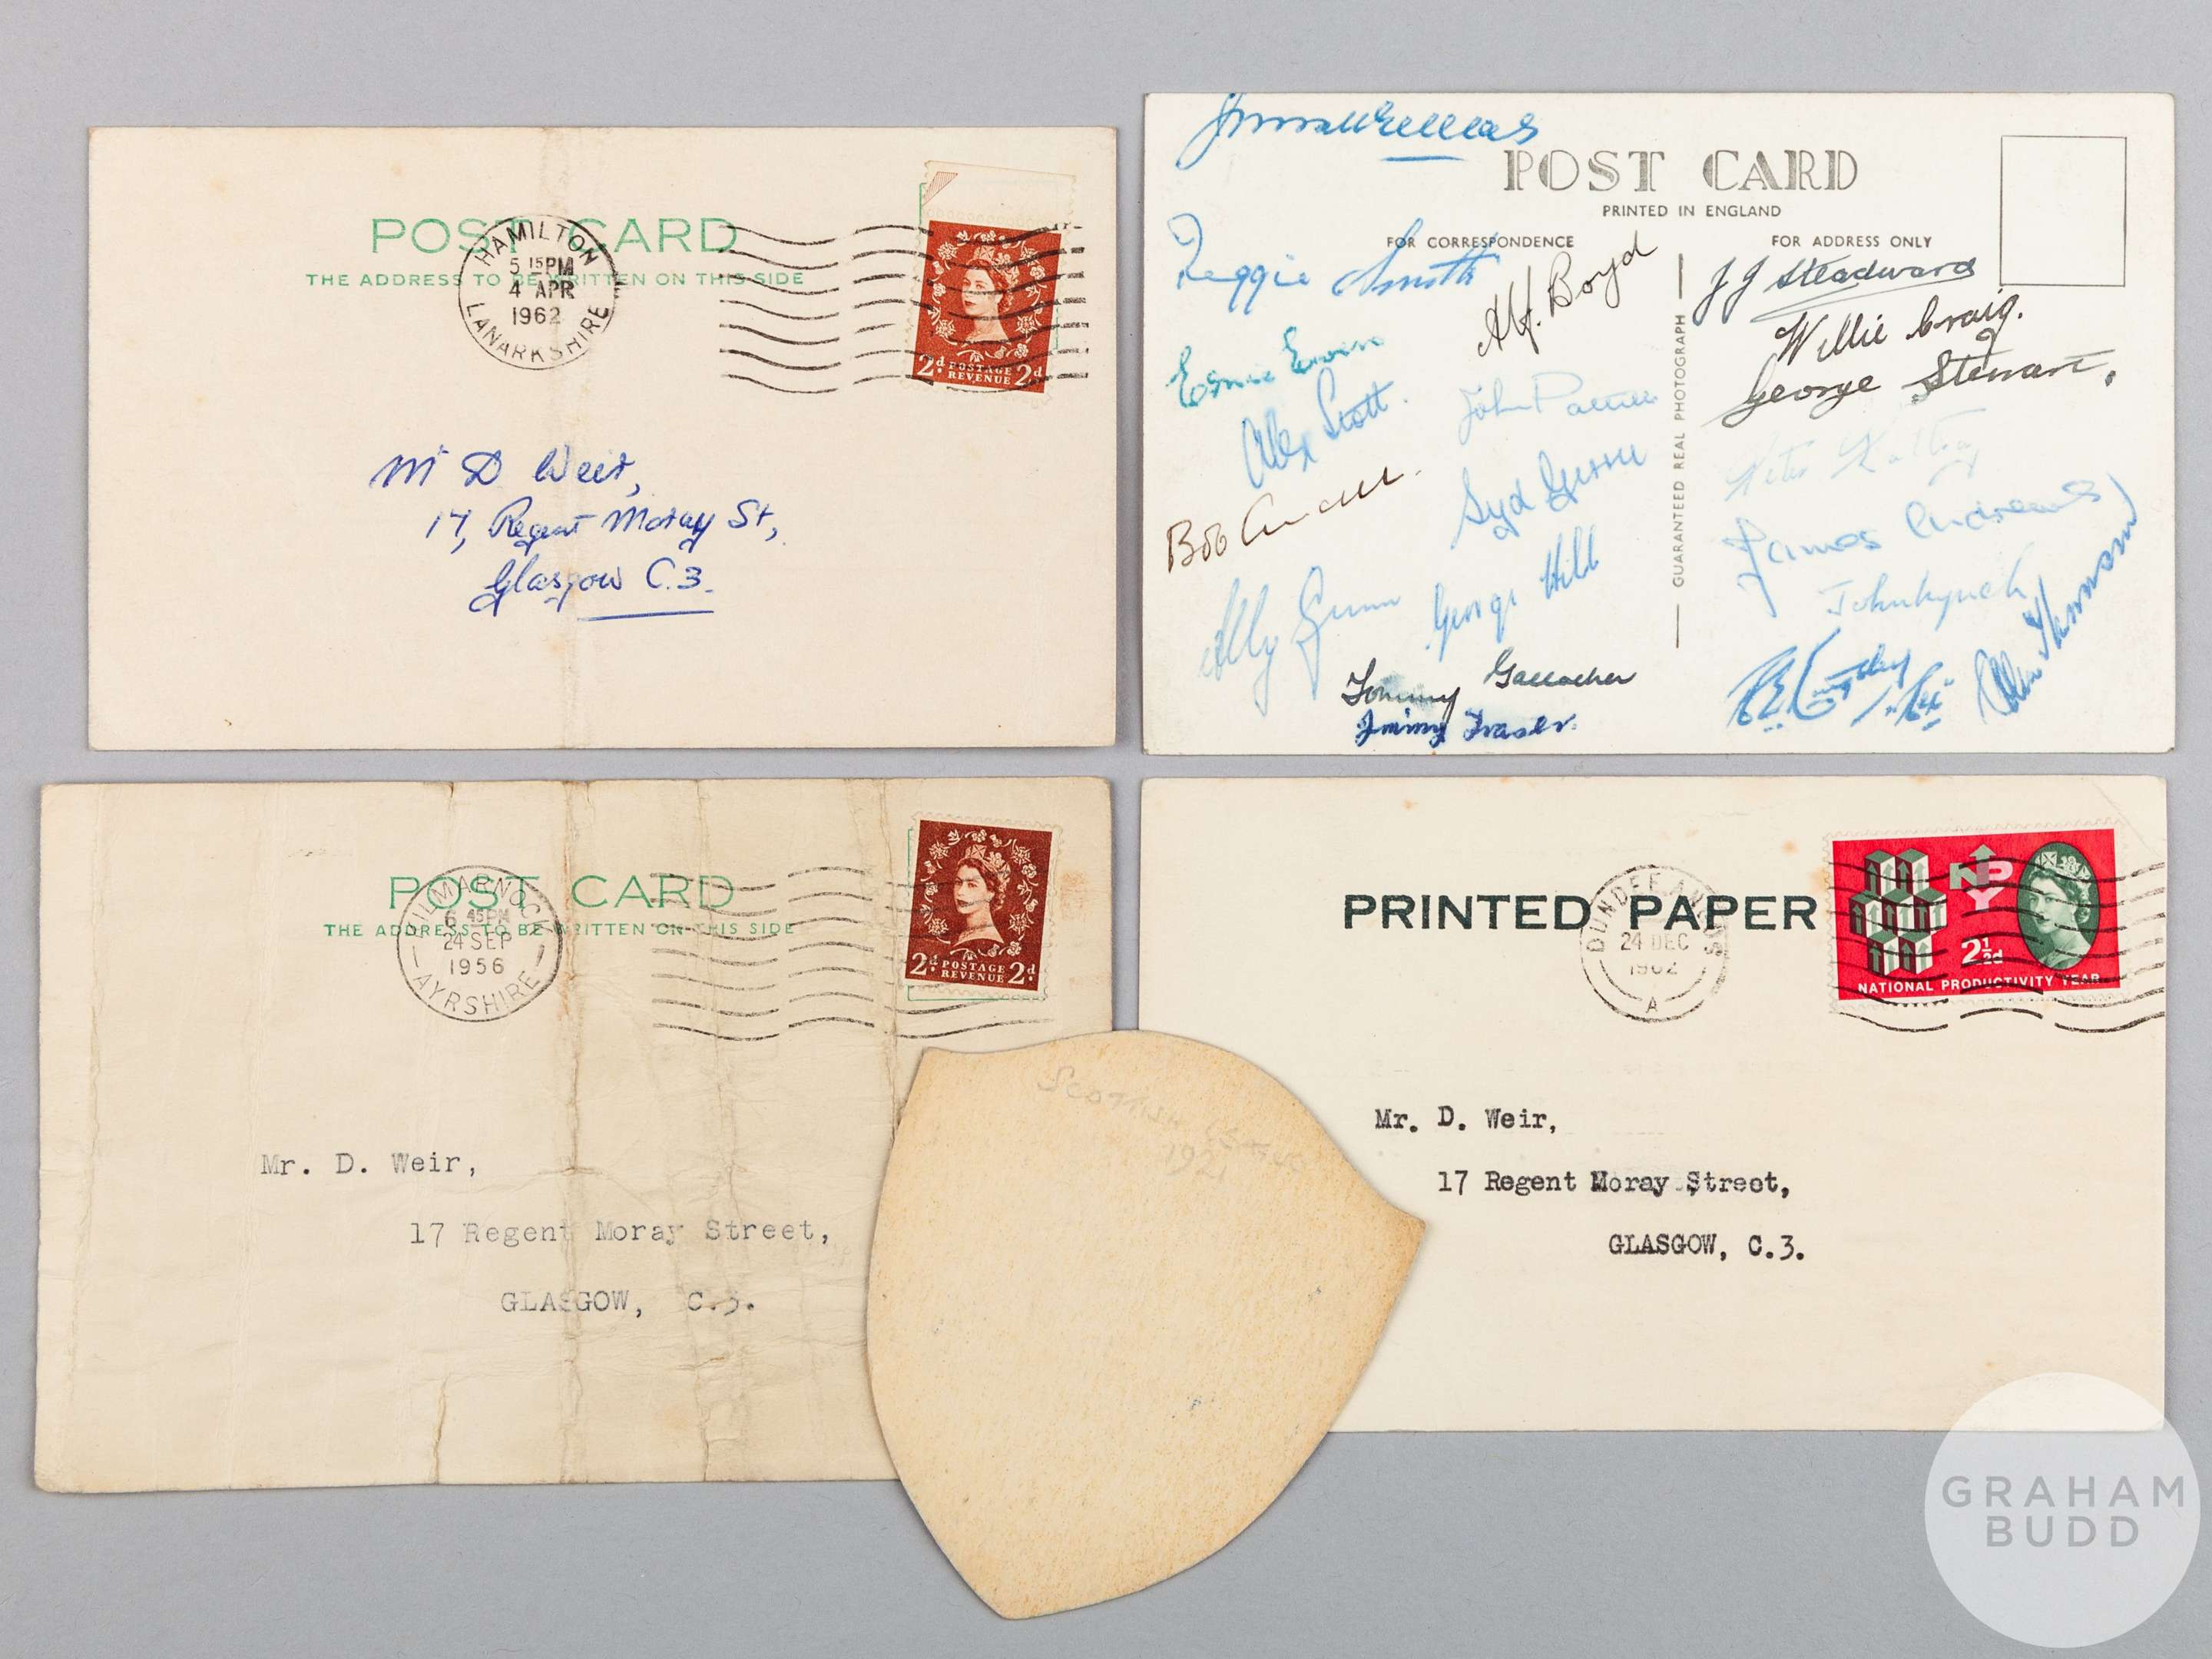 POST CARD
THE ADDRESS TO BE WRITTEN ON THIS SIDE
HAMILTON
5 15PM
4 APR
1962
LANARKSHIRE
2d POSTAGE REVENUE 2d
Mr D Weir,
17, Regent Moray St,
Glasgow C.3.
POST CARD
PRINTED IN ENGLAND
FOR CORRESPONDENCE
FOR ADDRESS ONLY
GUARANTEED REAL PHOTOGRAPH
Reggie Smith
Alf. Boyd
Ernie Ewen
Alex Scott.
John
Bob
Syd
Ally Gunn
George Hill
Tommy Gallacher
Jimmy Fraser.
J J Steadward
Willie Craig.
George Stewart.
Peter Rattray
James Andrews
John Lynch
POST CARD
THE ADDRESS TO BE WRITTEN ON THIS SIDE
KILMARNOCK
6 45PM
24 SEP
1956
AYRSHIRE
2d POSTAGE REVENUE 2d
Mr. D. Weir,
17 Regent Moray Street,
GLASGOW, C.3.
PRINTED PAPER
DUNDEE ANGUS
24 DEC
1962
A
NPY
2½d
NATIONAL PRODUCTIVITY YEAR
Mr. D. Weir,
17 Regent Moray Street,
GLASGOW, C.3.
Scottish
GRAHAM
BUDD